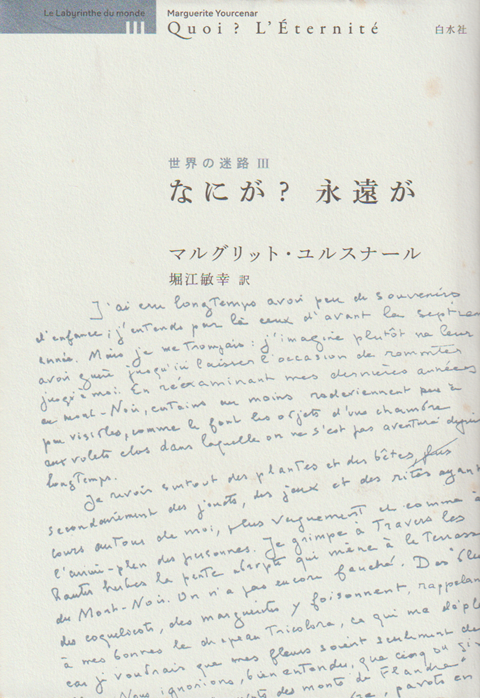 Le Labyrinthe du monde
III
Marguerite Yourcenar
Quoi? L'Éternité
白水社
世界の迷路 III
なにが? 永遠が
マルグリット・ユルスナール
堀江敏幸 訳
J'ai cru longtemps avoir peu de souvenirs
d'enfance; j'entends par là ceux d'avant la septième
année. Mais je me trompais: j'imagine plutôt ne leur
avoir guère jusqu'ici laissé l'occasion de remonter
jusqu'à moi. En réexaminant mes dernières années
au Mont-Noir, certains au moins redeviennent peu à
peu visibles, comme le font les objets d'une chambre
aux volets clos dans laquelle on ne s'est pas aventuré depuis
longtemps.
Je revois surtout des plantes et des bêtes, plus
secondairement des jouets, des jeux et des rites ayant
cours autour de moi, plus vaguement et comme à
l'arrière-plan des personnes. Je grimpe à travers les
hautes herbes la pente abrupte qui mène à la terrasse
du Mont-Noir. On n'a pas encore fauché. Des bleuets
des coquelicots, des marguerites y foisonnent, rappelant
à mes bonnes le drapeau tricolore, ce qui me déplaît
car je voudrais que mes fleurs soient seulement des
Nous ignorions, bien entendu, que cinq ou six
des monts de Flandre